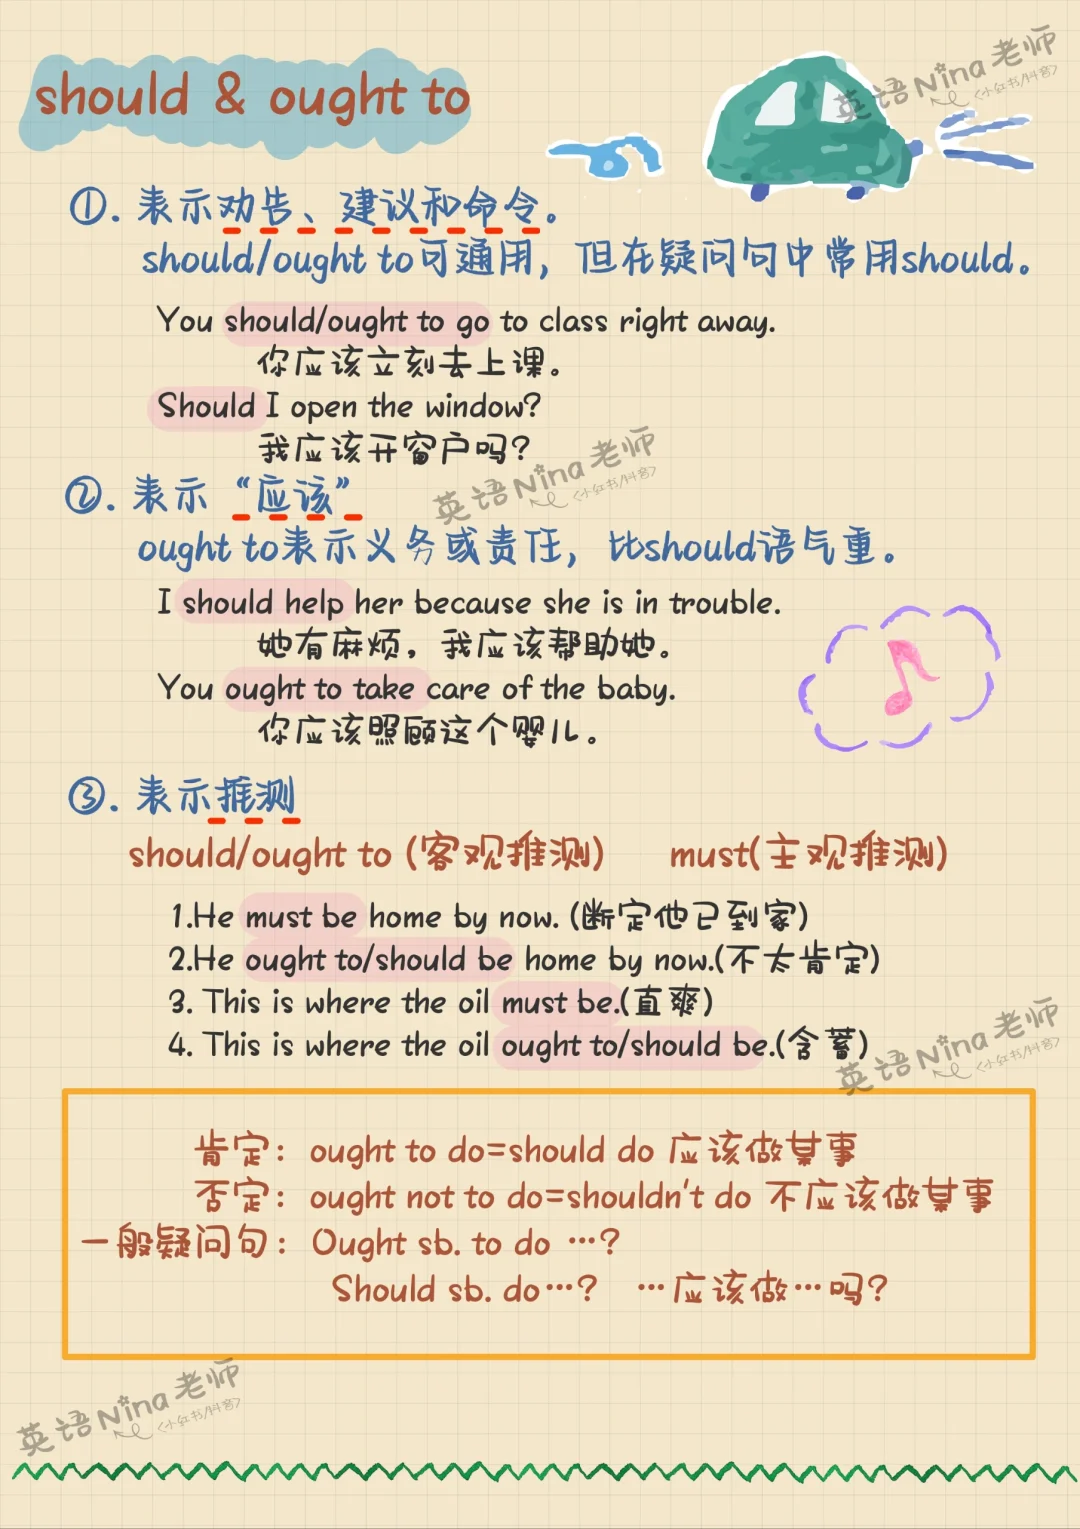 should & ought to
英语Nina老师
<小红书/抖音>
①. 表示劝告、建议和命令。
should/ought to可通用，但在疑问句中常用should。
You should/ought to go to class right away.
你应该立刻去上课。
Should I open the window?
我应该开窗户吗?
英语Nina老师
<小红书/抖音>
②. 表示“应该”
ought to表示义务或责任，比should语气重。
I should help her because she is in trouble.
她有麻烦，我应该帮助她。
You ought to take care of the baby.
你应该照顾这个婴儿。
③. 表示推测
should/ought to (客观推测) must(主观推测)
1.He must be home by now. (断定他已到家)
2.He ought to/should be home by now.(不太肯定)
3. This is where the oil must be.(直爽)
4. This is where the oil ought to/should be.(含蓄)
英语Nina老师
<小红书/抖音>
肯定：ought to do=should do 应该做某事
否定：ought not to do=shouldn't do 不应该做某事
一般疑问句：Ought sb. to do …?
Should sb. do…? …应该做…吗?
英语Nina老师
<小红书/抖音>